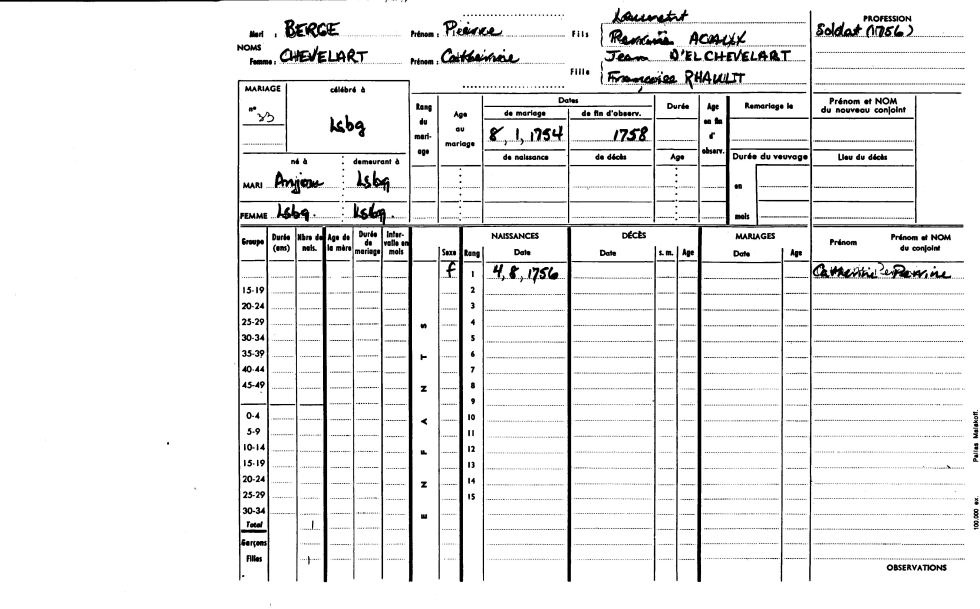 Mari : BERGE Prénom : Pierre Fils
PROFESSION
Soldat (1756)
NOMS
Femme : CHEVELART Prénom : Catherine Fille
Jean D'ELCHEVELART
Françoise RHAULT
MARIAGE célébré à
n° 33 Lsbg
Rang du mariage
Age au mariage
Dates
de mariage de fin d'observ.
8, 1, 1754 1758
de naissance de décès
Durée
Age
Age en fin d'observ.
Remariage le
Durée du veuvage
en
mois
Prénom et NOM du nouveau conjoint
Lieu du décès
né à demeurant à
MARI Anjou Lsbg
FEMME Lsbg. Lsbg.
Groupe Durée (ans) Nbre de nais. Age de la mère Durée de mariage Intervalle en mois
ENFANTS
Sexe Rang NAISSANCES Date DÉCÈS Date s. m. Age MARIAGES Date Age Prénom Prénom et NOM du conjoint
f 1 4, 8, 1756 Catherine Perrine
15-19 2
20-24 3
25-29 4
30-34 5
35-39 6
40-44 7
45-49 8
9
0-4 10
5-9 11
10-14 12
15-19 13
20-24 14
25-29 15
30-34
Total 1
Garçons
Filles 1
OBSERVATIONS
100,000 ex. Pallas Malakoff.